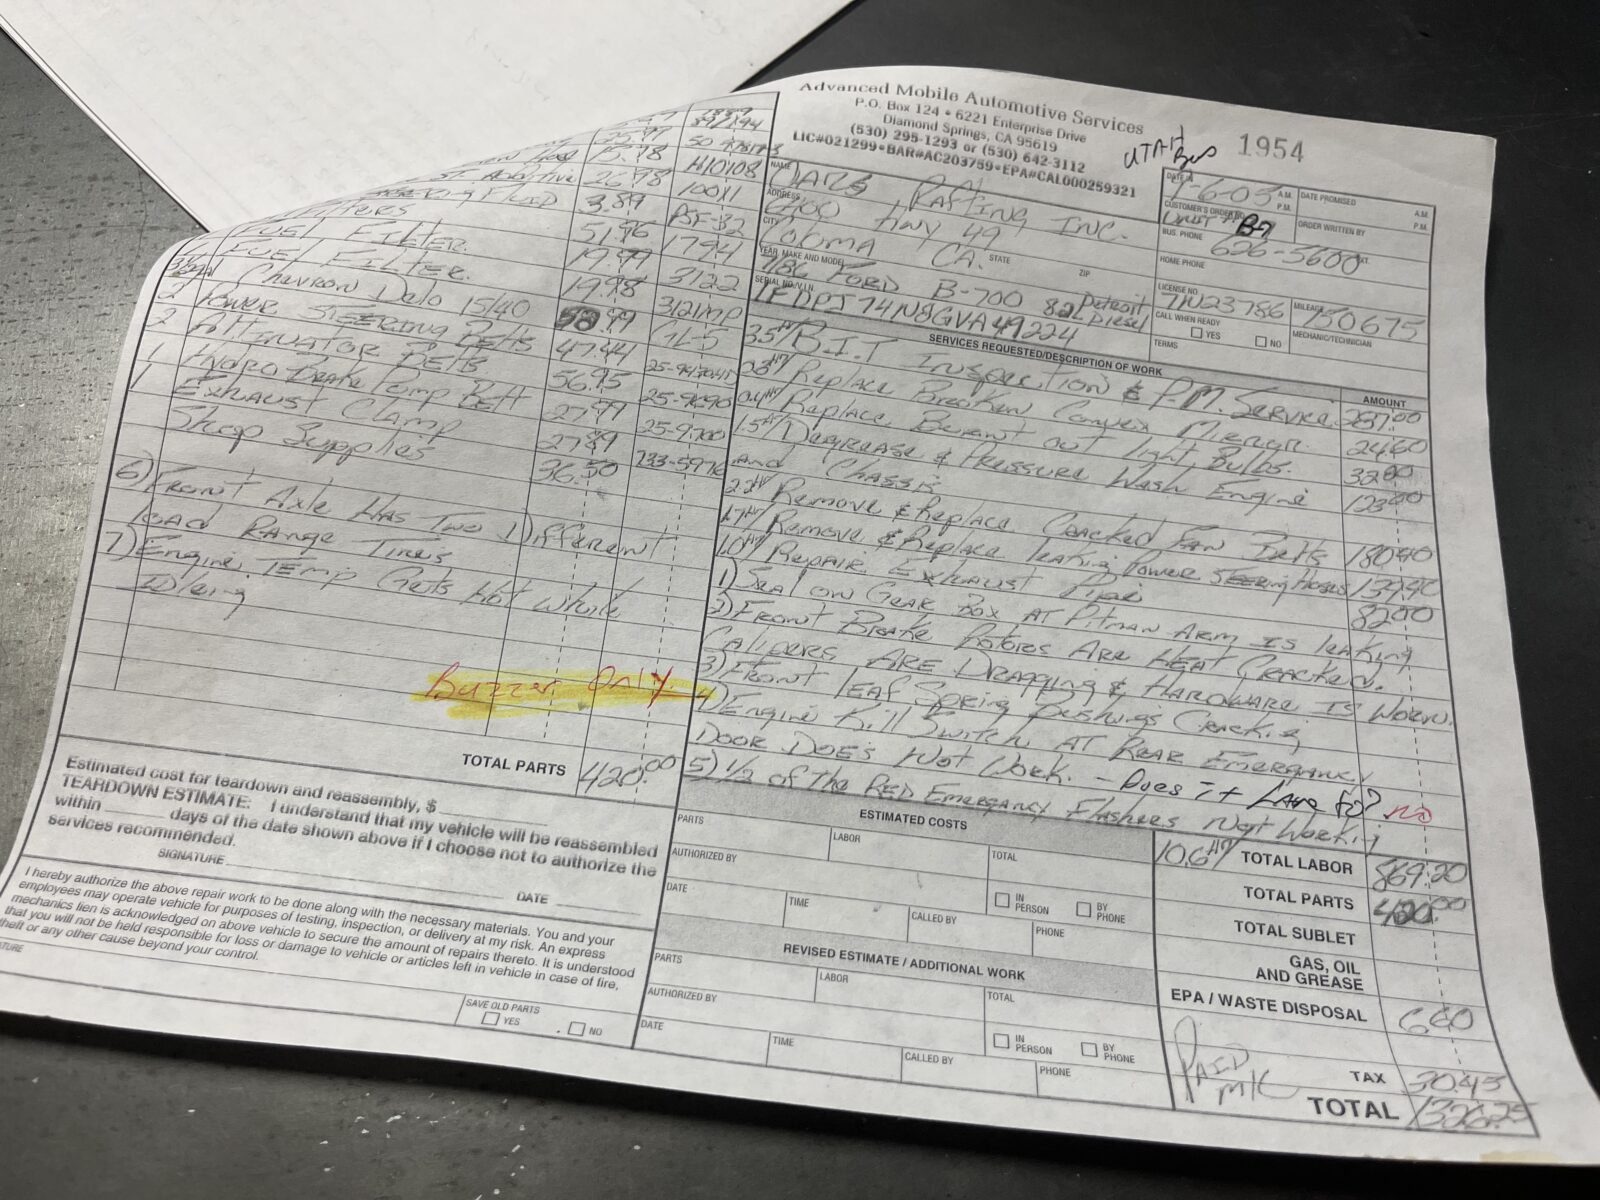 Advanced Mobile Automotive Services
P.O. Box 124 • 6221 Enterprise Drive
Diamond Springs, CA 95619
(530) 295-1293 or (530) 642-3112
LIC#021299•BAR#AC203759•EPA#CAL000259321
UTAH Bus
1954
NAME
Rafting Inc.
ADDRESS
Hwy 49
CITY
STATE
ZIP
CA.
YEAR, MAKE AND MODEL
1986 Ford B-700 8.2 Detroit Diesel
SERIAL NO./V.I.N.
1FDPJ74N8GVA49224
DATE IN
-6-05
A.M.
P.M.
DATE PROMISED
A.M.
P.M.
CUSTOMER'S ORDER NO.
Unit # B-7
ORDER WRITTEN BY
BUS. PHONE
626-5600
EXT.
HOME PHONE
LICENSE NO.
7N23786
MILEAGE
150675
CALL WHEN READY
YES
NO
MECHANIC/TECHNICIAN
TERMS
SERVICES REQUESTED/DESCRIPTION OF WORK
AMOUNT
3.5 Hr B.I.T Inspection & P.M. Service 287.00
0.3 Hr Replace Broken Convex Mirror. 24.60
0.4 Hr Replace Burnt out light Bulbs. 32.80
1.5 Hr Degrease & Pressure Wash Engine 123.00
and Chassis
2.2 Hr Remove & Replace Cracked Fan Belts 180.40
1.7 Hr Remove & Replace leaking Power Steering Hoses 139.40
1.0 Hr Repair Exhaust Pipe 82.00
1) Seal on Gear Box AT Pitman Arm is leaking
2) Front Brake Rotors Are Heat Cracked.
Calipers Are Dragging & Hardware is Worn.
3) Front leaf Spring Bushings Cracking
4) Engine Kill Switch AT Rear Emergancy
Door Does Not Work. - Does it Have to? no
5) 1/2 of The Red Emergancy Flashers Not Working
Fluid 3.89 PSF-32
Filters 51.96 1794
Fuel Filter 19.99 3122
Fuel Filter. 19.98 3121MP
Chevron Delo 15/40
2 Power Steering Belts 47.44
2 Alternator Belts 56.95
1 Hydro Brake Pump Belt 27.99 25-9700
1 Exhaust Clamp 27.89 733-5976
Shop Supplies 36.50
6) Front Axle Has Two Different
load Range Tires
7) Engine Temp Gets Hot While
Idleing
Buzzer Only
TOTAL PARTS 420.00
Estimated cost for teardown and reassembly, $
TEARDOWN ESTIMATE: I understand that my vehicle will be reassembled
within ______ days of the date shown above if I choose not to authorize the
services recommended.
SIGNATURE
DATE
I hereby authorize the above repair work to be done along with the necessary materials. You and your
employees may operate vehicle for purposes of testing, inspection, or delivery at my risk. An express
mechanics lien is acknowledged on above vehicle to secure the amount of repairs thereto. It is understood
that you will not be held responsible for loss or damage to vehicle or articles left in vehicle in case of fire,
theft or any other cause beyond your control.
SAVE OLD PARTS
YES
NO
ESTIMATED COSTS
PARTS
LABOR
TOTAL
AUTHORIZED BY
IN PERSON
BY PHONE
DATE
TIME
CALLED BY
PHONE
REVISED ESTIMATE / ADDITIONAL WORK
PARTS
LABOR
TOTAL
AUTHORIZED BY
IN PERSON
BY PHONE
DATE
TIME
CALLED BY
PHONE
10.6 Hr TOTAL LABOR 869.20
TOTAL PARTS 420.00
TOTAL SUBLET
GAS, OIL AND GREASE
EPA / WASTE DISPOSAL 6.60
TAX 30.45
TOTAL 1326.25
PAID
M/C